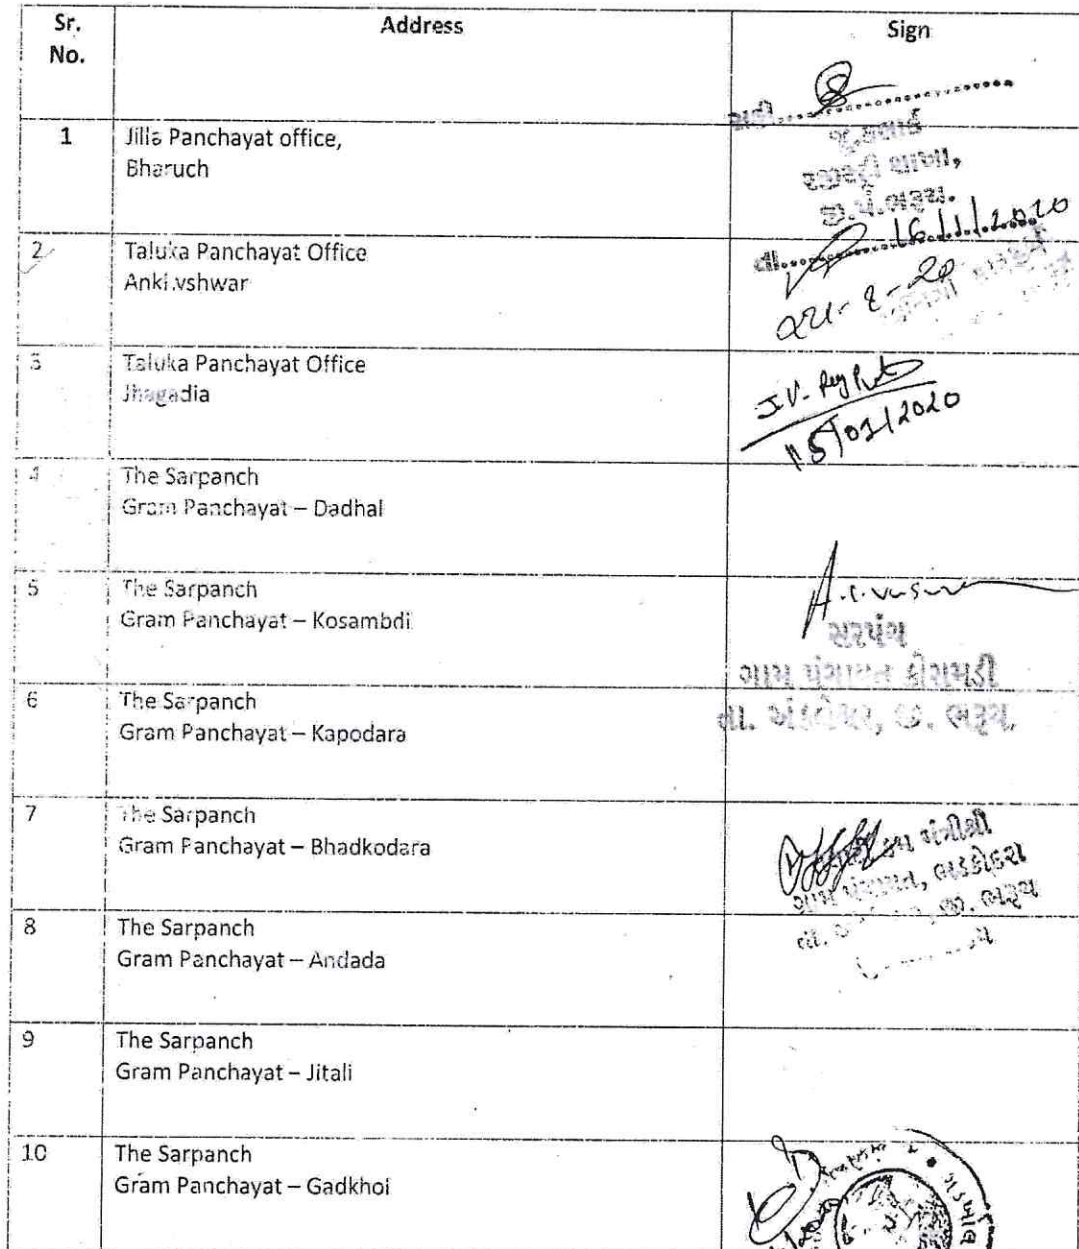 Sr. No.
Address
Sign
1
Jilla Panchayat office,
Bharuch
16/1/2020
2
Taluka Panchayat Office
Anki.vshwar
3
Taluka Panchayat Office
Jhagadia
15/01/2020
4
The Sarpanch
Gram Panchayat – Dadhal
5
The Sarpanch
Gram Panchayat – Kosambdi
સરપંચ
ગામ પંચાયત કોસમડી
6
The Sarpanch
Gram Panchayat – Kapodara
તા. અંકલેશ્વર, જી. ભરૂચ.
7
The Sarpanch
Gram Panchayat – Bhadkodara
ગામ પંચાયત, ભડકોદરા
8
The Sarpanch
Gram Panchayat – Andada
જી. ભરૂચ
9
The Sarpanch
Gram Panchayat – Jitali
10
The Sarpanch
Gram Panchayat – Gadkhoi